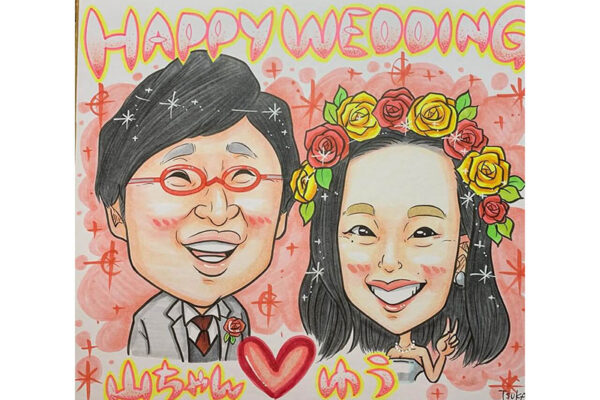 HAPPY WEDDING
山ちゃん ゆう
TSUKA